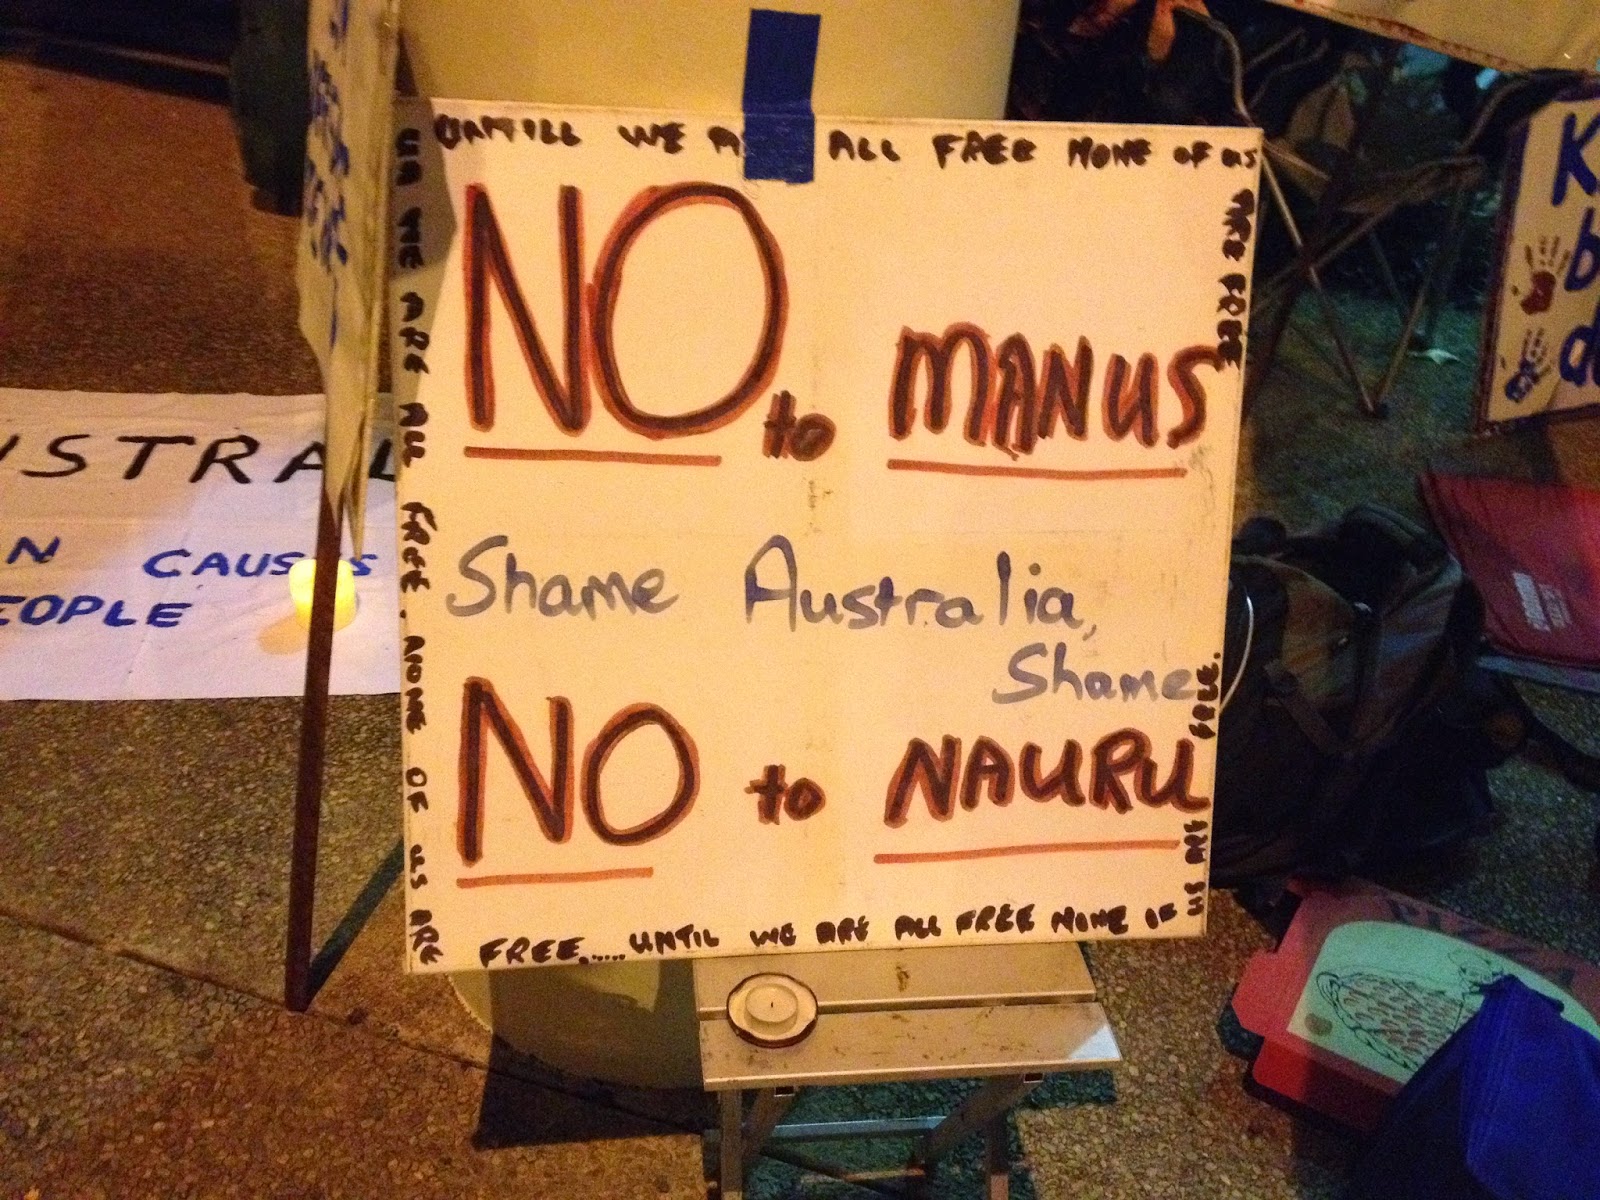 UNTILL WE A ALL FREE NONE OF US
ARE FREE
NO to MANUS
Shame Australia,
Shame
NO to NAURU
WE ARE ALL FREE. NONE OF US ARE
FREE...... UNTIL WE ARE ALL FREE NONE OF
US ARE FREE.
USTRAL
N CAUSES
EOPLE
K
b
d
PIZZA